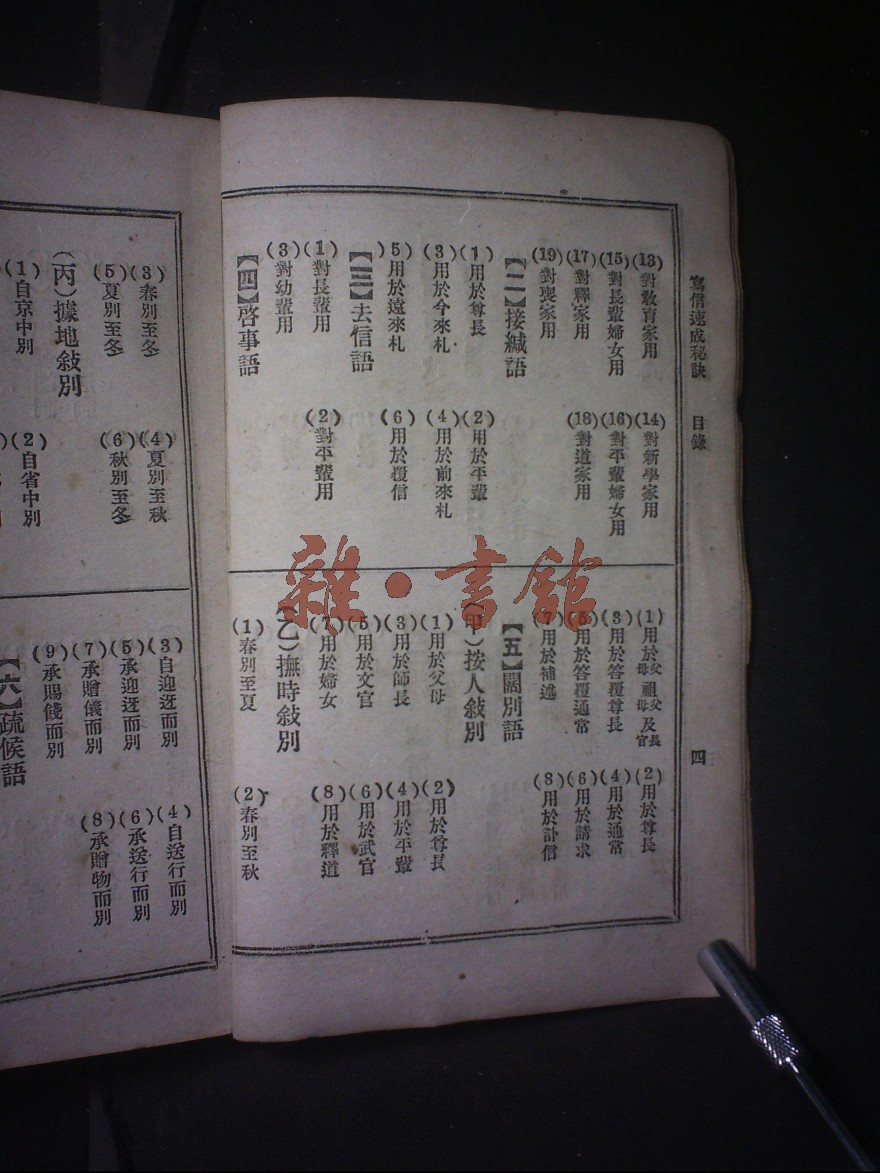 寫信速成秘訣 目錄 四
(13)對教育家用 (14)對新學家用
(15)對長輩婦女用 (16)對平輩婦女用
(17)對釋家用 (18)對道家用
(19)對喪家用
【二】接緘語
(1)用於尊長 (2)用於平輩
(3)用於今來札 (4)用於前來札
(5)用於遠來札 (6)用於覆信
【三】去信語
(1)對長輩用 (2)對平輩用
(3)對幼輩用
【四】啓事語
(1)用於父母祖父母及長官 (2)用於尊長
(3)用於答覆尊長 (4)用於通常
(5)用於答覆通常 (6)用於請求
(7)用於補述 (8)用於訃信
【五】闊別語
(甲)按人敍別
(1)用於父母 (2)用於尊長
(3)用於師長 (4)用於平輩
(5)用於文官 (6)用於武官
(7)用於婦女 (8)用於釋道
(乙)撫時敍別
(1)春別至夏 (2)春別至秋
(3)春別至冬 (4)夏別至秋
(5)夏別至冬 (6)秋別至冬
(丙)據地敍別
(1)自京中別 (2)自省中別
(3)自迎迓而別 (4)自送行而別
(5)承迎迓而別 (6)承送行而別
(7)承贈儀而別 (8)承贈物而別
(9)承賜餞而別
【六】疏候語
雜·書館